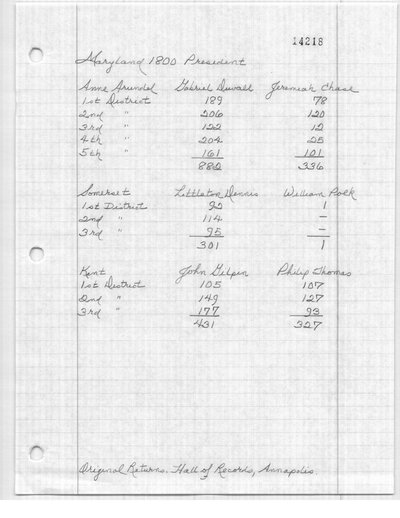 14218
Maryland 1800 President
Anne Arundel Gabriel Duvall Jeremiah Chase
1st District 189 78
2nd " 206 120
3rd " 122 12
4th " 204 25
5th " 161 101
882 336
Somerset Littleton Dennis William Polk
1st District 92 1
2nd " 114 –
3rd " 95 –
301 1
Kent John Gilpin Philip Thomas
1st District 105 107
2nd " 149 127
3rd " 177 93
431 327
Original Returns. Hall of Records, Annapolis.